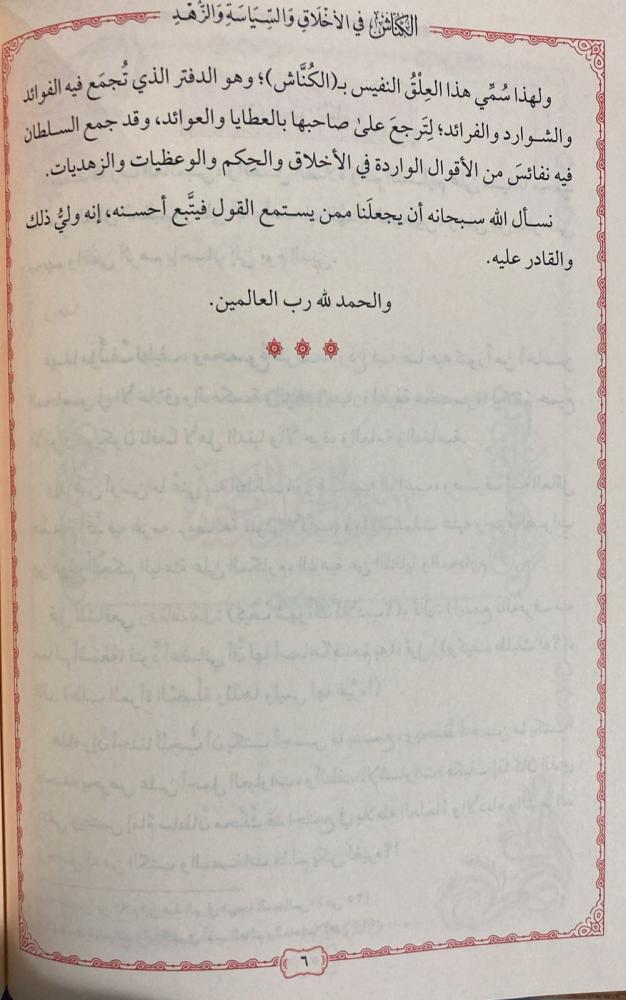 الكُنَّاش في الأَخْلَاقِ وَالسِّيَاسَةِ وَالزُّهْدِ
ولهذا سُمِّي هذا العِلْقُ النفيس بـ(الكُنَّاش)؛ وهو الدفتر الذي تُجمَع فيه الفوائد
والشوارد والفرائد؛ لِتَرجعَ علىٰ صاحبها بالعطايا والعوائد، وقد جمع السلطان
فيه نفائسَ من الأقوال الواردة في الأخلاق والحِكم والوعظيات والزهديات.
نسأل الله سبحانه أن يجعلَنا ممن يستمع القول فيتَّبع أحسنه، إنه وليُّ ذلك
والقادر عليه.
والحمد لله رب العالمين.
٦